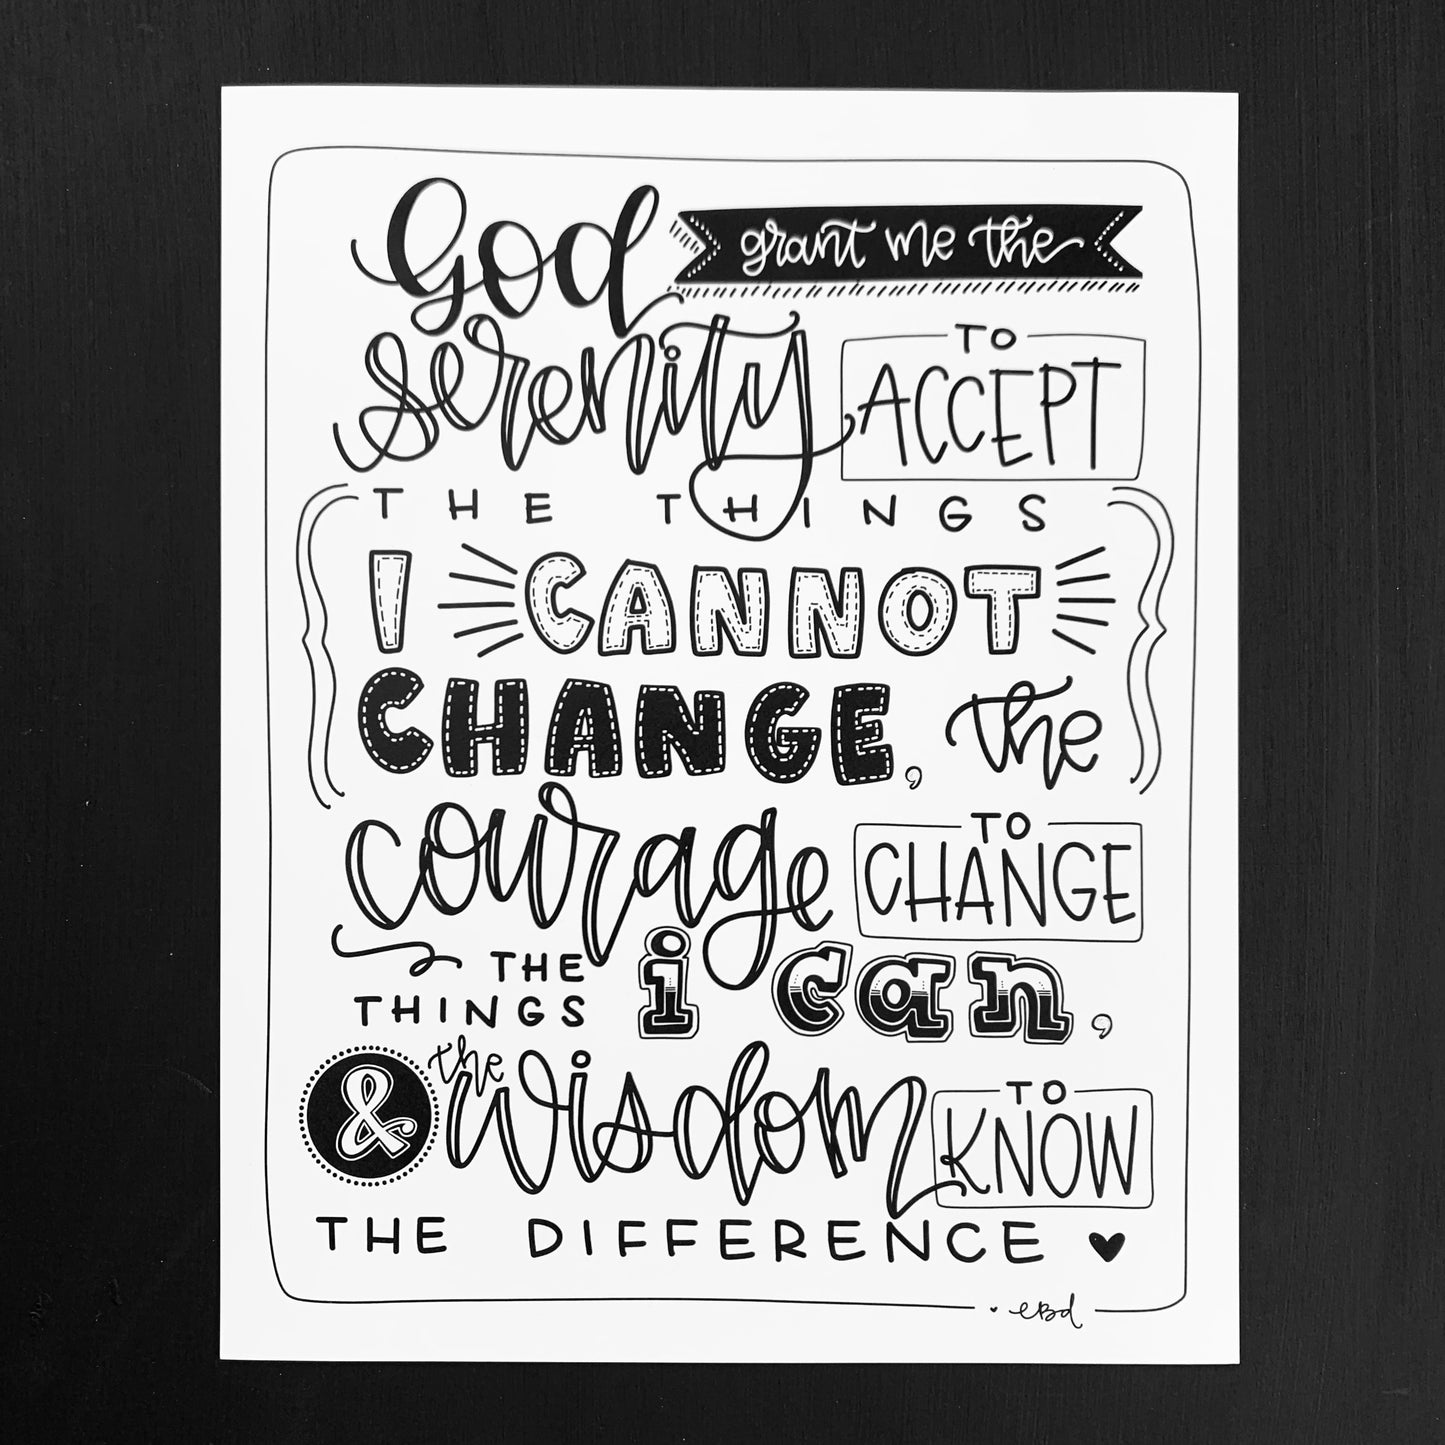 God grant me the
serenity TO ACCEPT
THE THINGS
I CANNOT
CHANGE, the
courage TO CHANGE
THE THINGS i can,
& the wisdom TO KNOW
THE DIFFERENCE
eBd